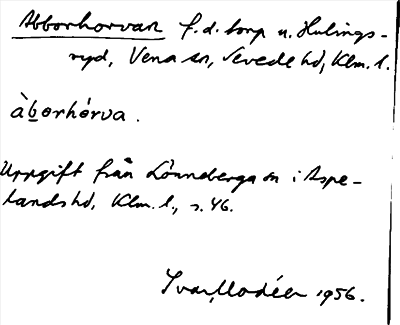 Abborhorvan f.d. torp u. Hulings-
ryd, Vena sn, Sevede hd, Klm. l.
àborhórva.
Uppgift från Lönneberga sn i Aspe-
lands hd, Klm. l., s. 46.
Ivar Modéer 1956.